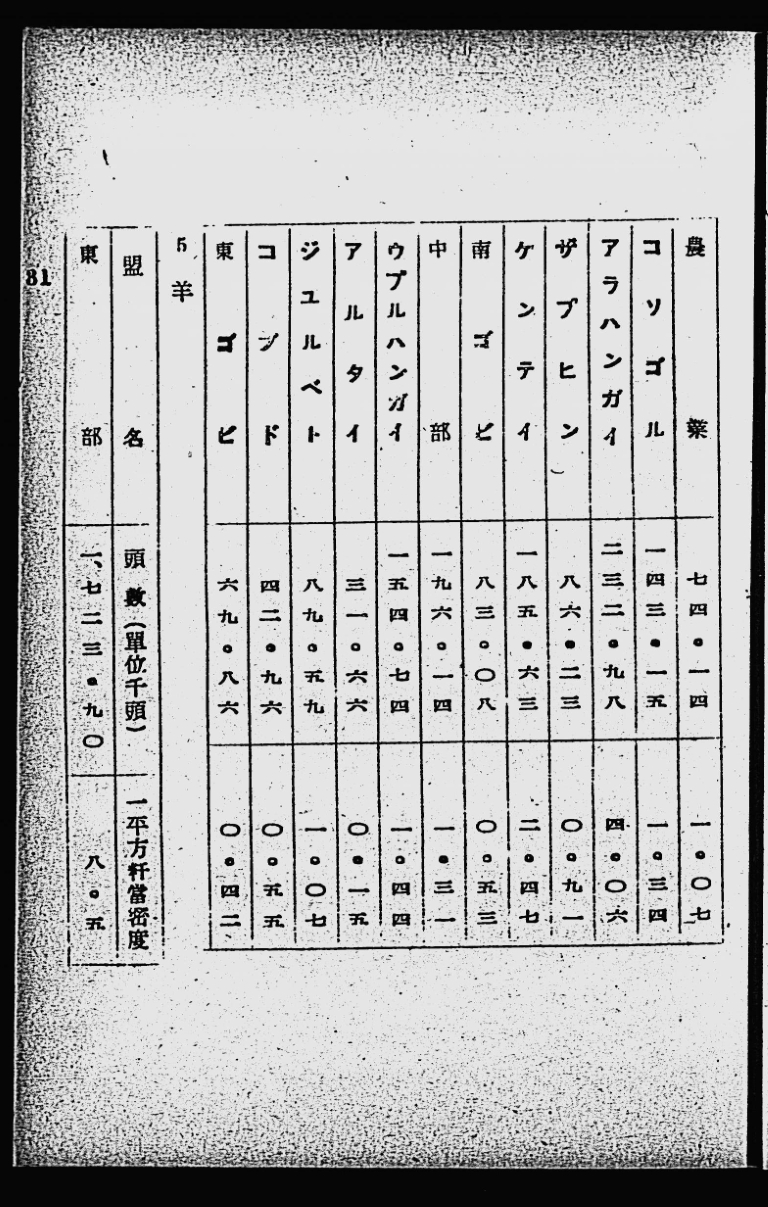 農業 七四。一四 一。〇七
コソゴル 一四三。一五 一。三四
アラハンガイ 二三二。九八 四。〇六
ザブヒン 八六。二三 〇。九一
ケンテイ 一八五。六三 二。四七
南ゴビ 八三。〇八 〇。五三
中部 一九六。一四 一。三一
ウブルハンガイ 一五四。七四 一。四四
アルタイ 三一。六六 〇。一五
ジユルベト 八九。五九 一。〇七
コブド 四二。九六 〇。五五
東ゴビ 六九。八六 〇。四二
5 羊
盟名 頭數(單位千頭) 一平方粁當密度
東部 一、七二三。九〇 八。五
81